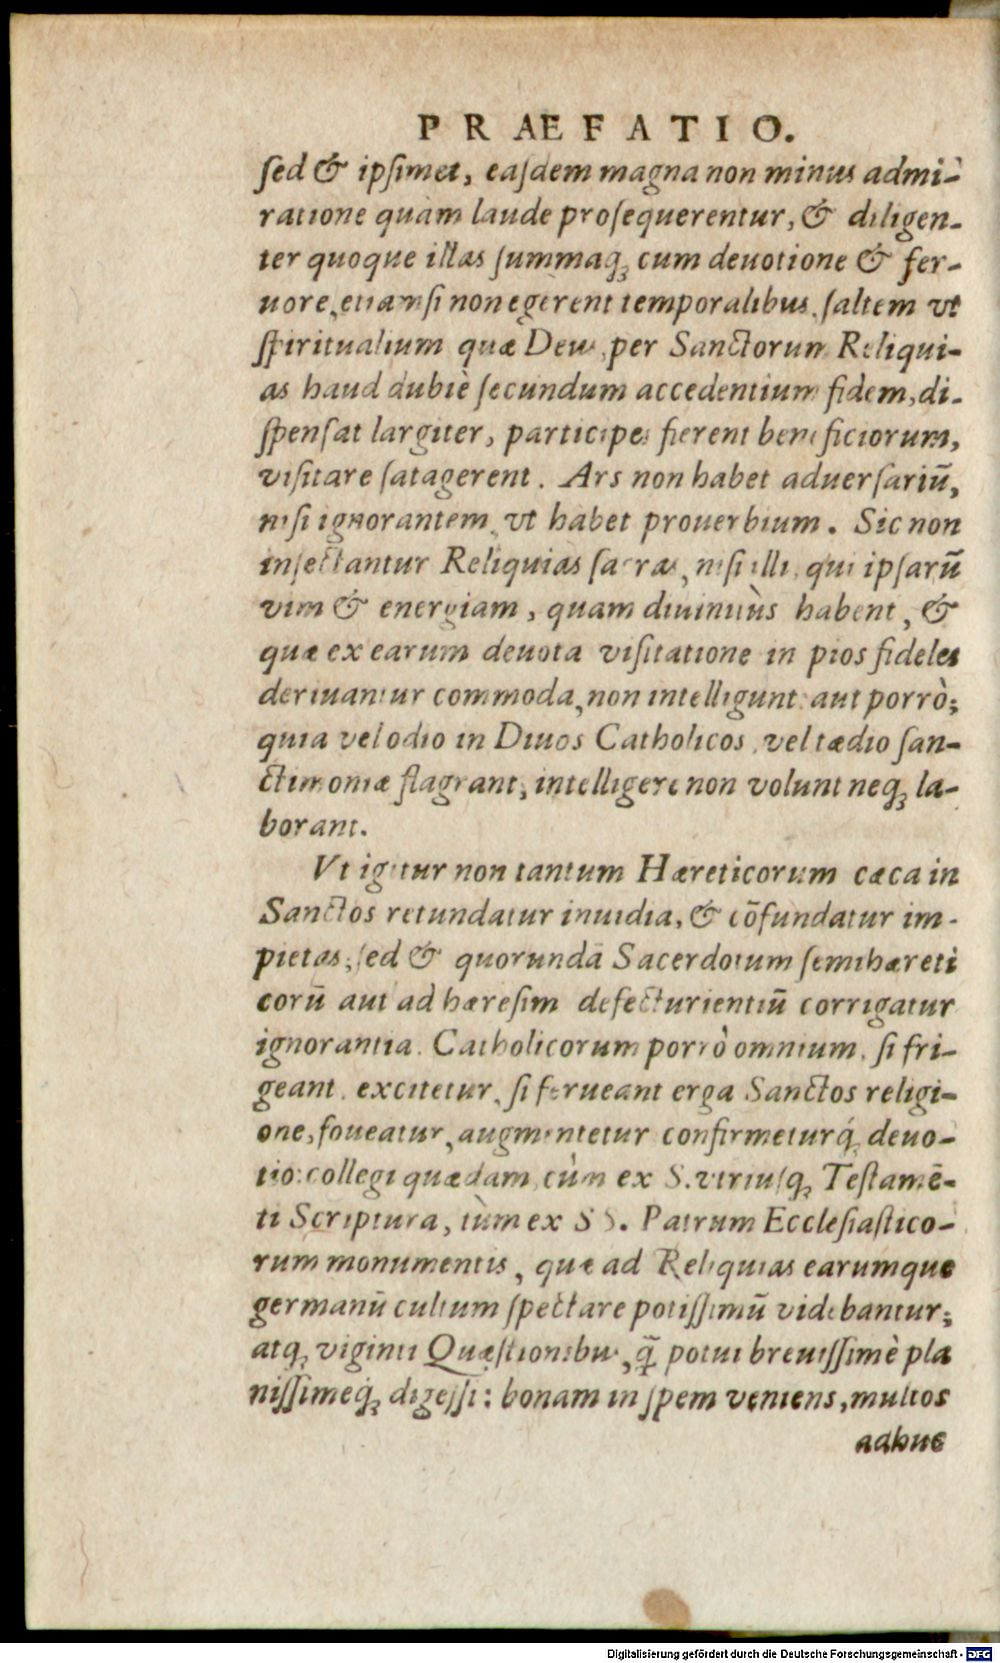 PRÆFATIO.
ſed & ipſimet, eaſdem magna non minus admi-
ratione quàm laude proſequerentur, & diligen-
ter quoque illas ſummaq́; cum deuotione & fer-
uore, etiamſi non egèrent temporalibus, ſaltem vt
ſpiritualium quæ Deus per Sanctorum Reliqui-
as haud dubiè ſecundum accedentium fidem, di-
ſpenſat largiter, participes fierent beneficiorum,
viſitare ſatagerent. Ars non habet aduerſariū,
niſi ignorantem, vt habet prouerbium. Sic non
inſectantur Reliquias ſacras, niſi illi, qui ipſarū
vim & energiam, quam diuinitùs habent, &
quæ ex earum deuota viſitatione in pios fideles
deriuantur commoda, non intelligunt: aut porrò;
quia vel odio in Diuos Catholicos, vel tædio ſan-
ctimoniæ flagrant, intelligere non volunt neq; la-
borant.
Vt igitur non tantum Hæreticorum cæca in
Sanctos retundatur inuidia, & cōfundatur im-
pietas; ſed & quorundā Sacerdotum ſemihæreti
corū aut ad hæreſim defecturientiū corrigatur
ignorantia. Catholicorum porrò omnium, ſi fri-
geant, excitetur, ſi ferueant erga Sanctos religi-
one, foueatur, augmentetur confirmeturq́; deuo-
tio: collegi quædam, cùm ex S. vtriuſq; Teſtamē-
ti Scriptura, tùm ex SS. Patrum Eccleſiaſtico-
rum monumentis, quæ ad Reliquias earumque
germanū cultum ſpectare potiſſimū videbantur;
atq; viginti Quæſtionibus, q̃ potui breuiſſimè pla
niſſimeq́; digeſſi: bonam in ſpem veniens, multos
adhuc
Digitalisierung gefördert durch die Deutsche Forschungsgemeinschaft - DFG